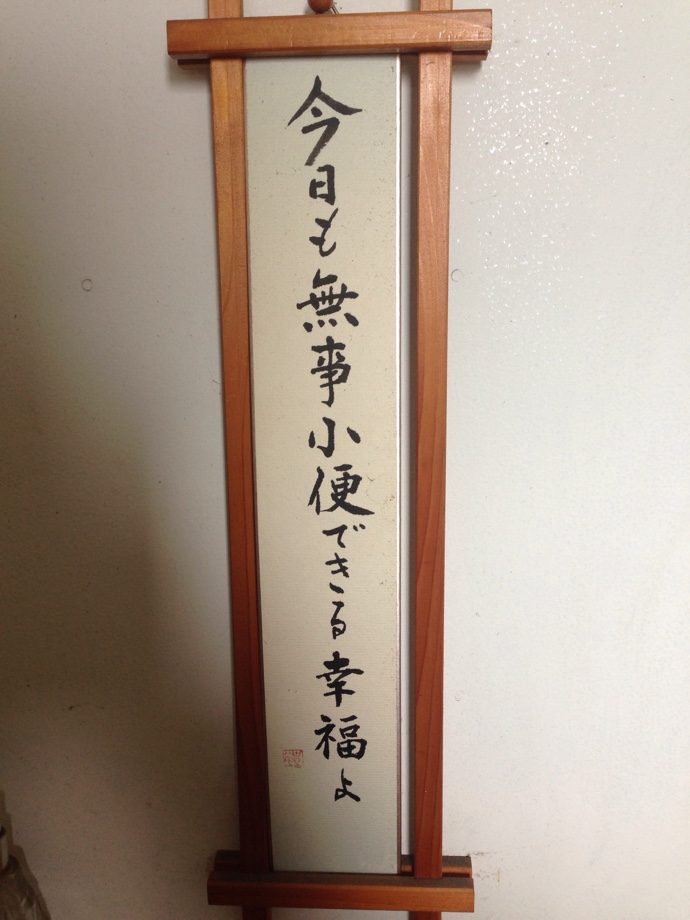 今日も無事小便できる幸福よ